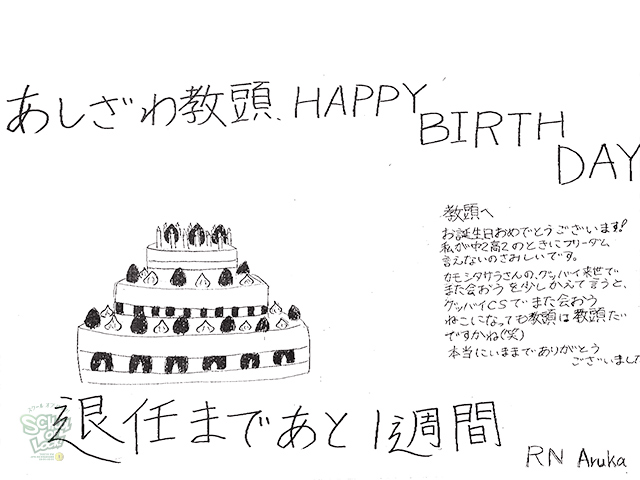 あしざわ教頭、HAPPY
BIRTH
DAY
教頭へ
お誕生日おめでとうございます!
私が中2高2のときにフリーダム
言えないのさみしいです。
カモシタサラさんの、グッバイ来世で
また会おう を少しかえて言うと、
グッバイCSで また会おう
ねこになっても教頭は教頭だ
ですかね(笑)
本当にいままでありがとう
ございました
退任まであと1週間
RN Aruka